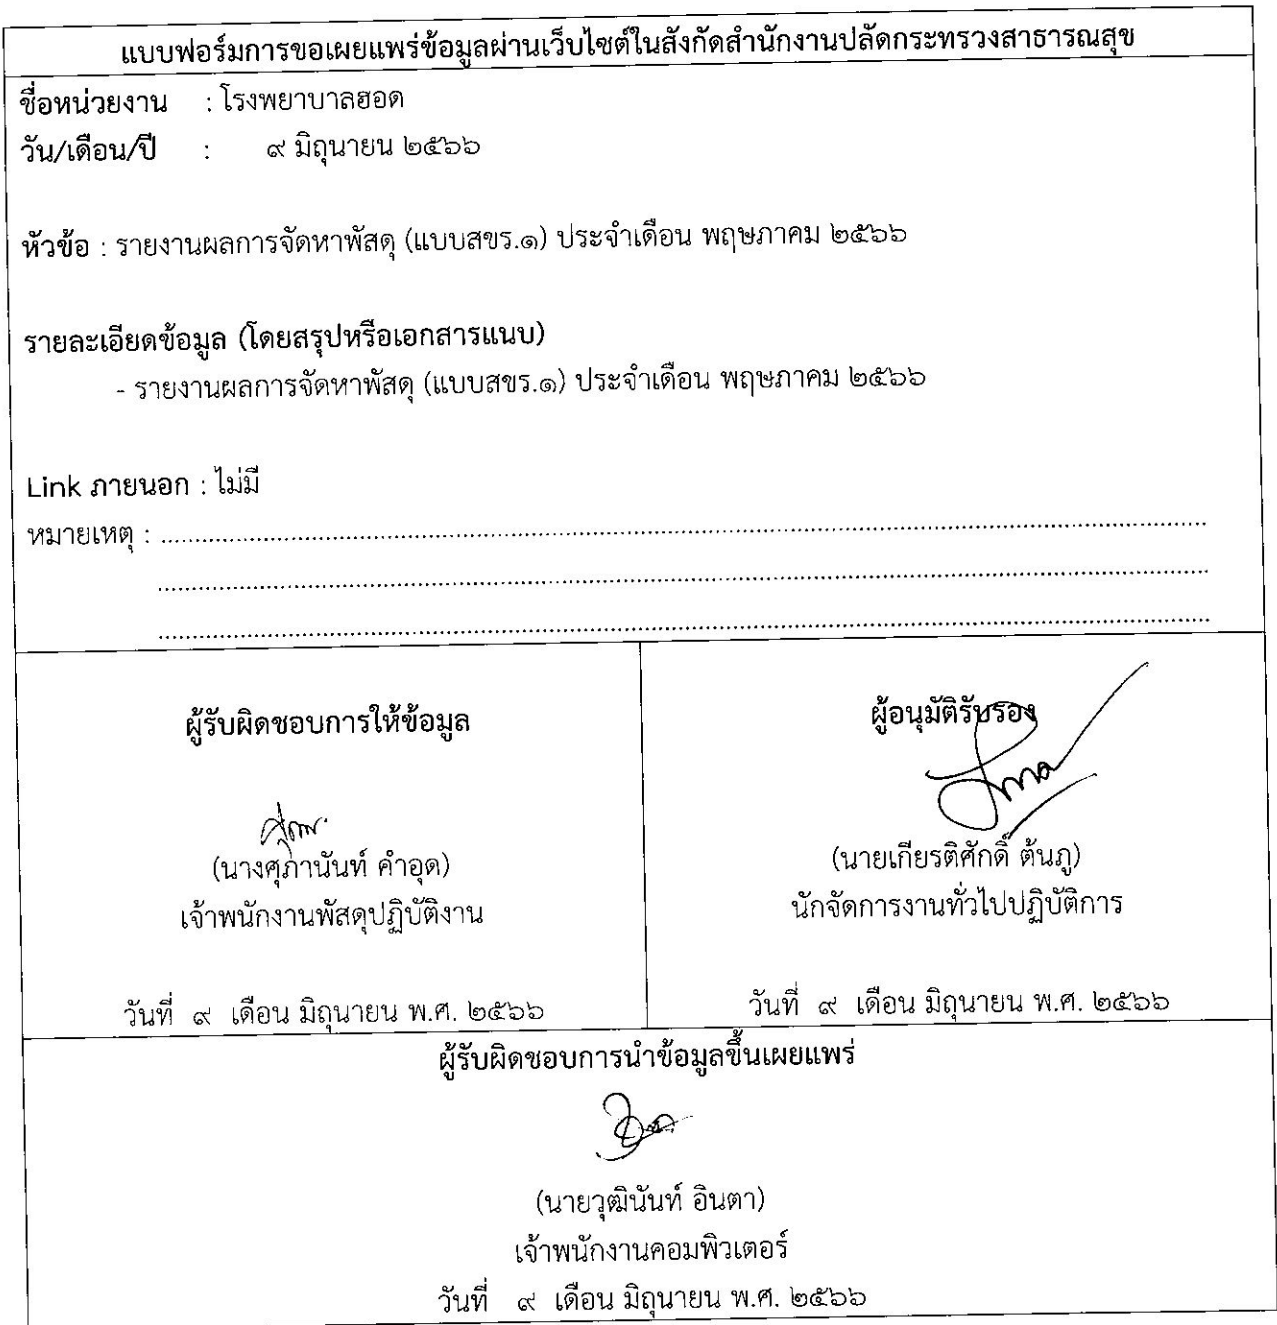 แบบฟอร์มการขอเผยแพร่ข้อมูลผ่านเว็บไซต์ในสังกัดสำนักงานปลัดกระทรวงสาธารณสุข
ชื่อหน่วยงาน : โรงพยาบาลฮอด
วัน/เดือน/ปี : ๙ มิถุนายน ๒๕๖๖
หัวข้อ : รายงานผลการจัดหาพัสดุ (แบบสขร.๑) ประจำเดือน พฤษภาคม ๒๕๖๖
รายละเอียดข้อมูล (โดยสรุปหรือเอกสารแนบ)
- รายงานผลการจัดหาพัสดุ (แบบสขร.๑) ประจำเดือน พฤษภาคม ๒๕๖๖
Link ภายนอก : ไม่มี
หมายเหตุ :
ผู้รับผิดชอบการให้ข้อมูล
(นางศุภานันท์ คำอุด)
เจ้าพนักงานพัสดุปฏิบัติงาน
วันที่ ๙ เดือน มิถุนายน พ.ศ. ๒๕๖๖
ผู้อนุมัติรับรอง
(นายเกียรติศักดิ์ ต้นภู)
นักจัดการงานทั่วไปปฏิบัติการ
วันที่ ๙ เดือน มิถุนายน พ.ศ. ๒๕๖๖
ผู้รับผิดชอบการนำข้อมูลขึ้นเผยแพร่
(นายวุฒินันท์ อินตา)
เจ้าพนักงานคอมพิวเตอร์
วันที่ ๙ เดือน มิถุนายน พ.ศ. ๒๕๖๖